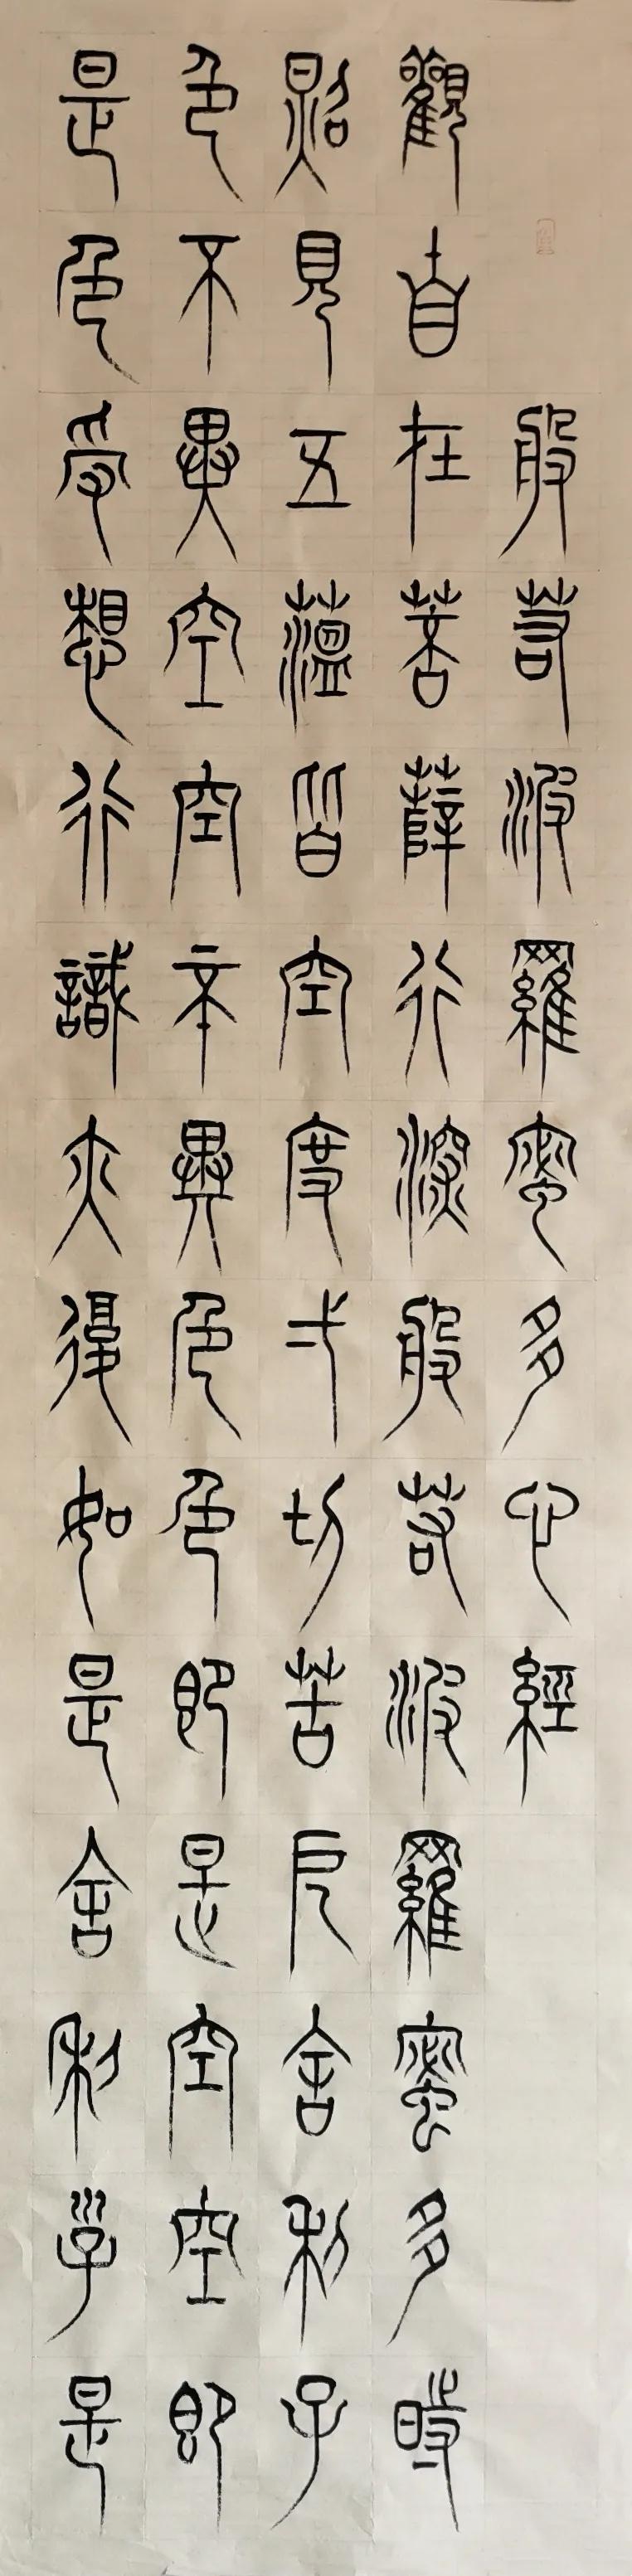 般若波羅蜜多心經
觀自在菩薩行深般若波羅蜜多時
照見五蘊皆空度一切苦厄舍利子
色不異空空不異色色即是空空即
是色受想行識亦復如是舍利子是